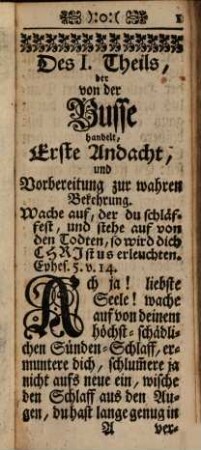 ):o:( 1
Des I. Theils,
der
von der
Busse
handelt,
Erste Andacht,
und
Vorbereitung zur wahren
Bekehrung.
Wache auf, der du schläf-
fest, und stehe auf von
den Todten, so wird dich
CHRIstus erleuchten.
Ephes. 5. v. 14.
Ach ja! liebste
Seele! wache
auf von deinem
höchst-schädli-
chen Sünden-Schlaff, er-
muntere dich, schlum̃ere ja
nicht aufs neue ein, wische
den Schlaff aus den Au-
gen, du hast lange genug in
A ver-